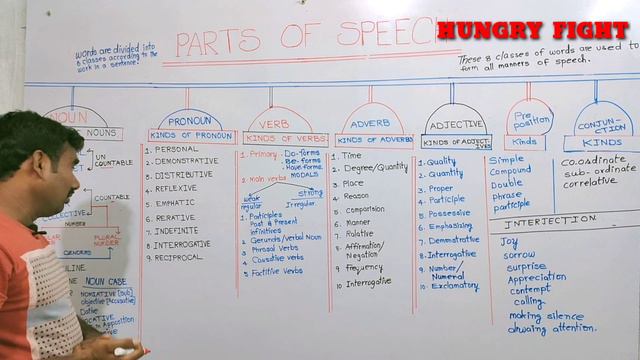 HUNGRY FIGHT
PARTS OF SPEECH
words are divided into
8 classes according to the
work in a sentence.
These 8 classes of words are used to
form all manners of speech.
NOUN
NOUNS
UN
COUNTABLE
COUNTABLE
NUMBER
GENDERS
NOUN CASE
NOMIATIVE [sub]
objective [Accusative]
Dative
Apposition
PRONOUN
KINDS OF PRONOUN
1. PERSONAL
2. DEMONSTRATIVE
3. DISTRIBUTIVE
4. REFLEXIVE
5. EMPHATIC
6. RERATIVE
7. INDEFINITE
8 INTERROGATIVE
9. RECIPROCAL
VERB
KINDS OF VERBS
1. Primary
Do-forms
Be-forms
Have-forms
MODALS
2. Main verbs
weak
strong
regular
Irregular.
1. Participles
Past & Present
infinitives
2. Gerunds/verbal Noun
3 Phrasal Verbs
4. Causative verbs
5. Factitive Verbs
ADVERB
KINDS OF ADVERBS
1. Time
2. Degree/Quantity
3. Place
4. Reason
5. comparision
6. Manner
7. Ralative
8. Affirmation/
Negation
9 Frequency
10 Interrogative
ADJECTIVE
KINDS OF ADJECT-
IVES
1. Quality
2. Quantity
3. Proper
4. Participle
5. Possessive
6. Emphasizing
7. Demnstrative
8. Interrogative
9. Number/
Numeral
10. Exclamatory
Pre
position
Kinds
Simple
Compound
Double
Phrase
participle
CONJUN-
CTION
KINDS
co.oAdinate
sub-ordinate
correlative
INTERJECTION
Joy
sorrow
surprise
Appreciation
contempt
calling
making silence
attention.